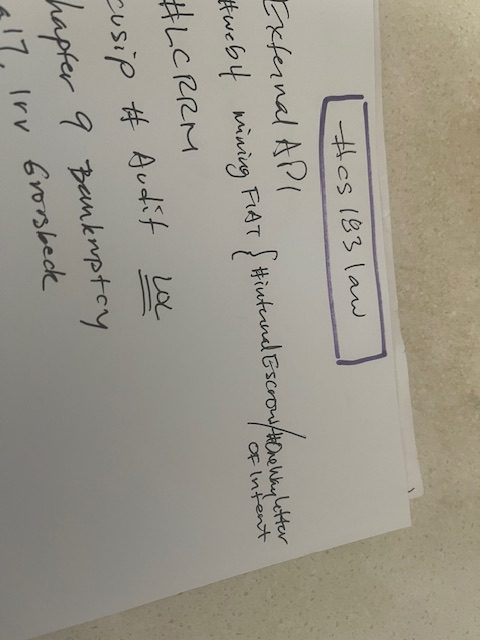 #cs183law
External API
#web4 mining FIAT { #internalEscrow/#OneWayLetter
OF Intent
#LCRRM
cusip # Audit
hapter 9 Bankruptcy
Irv Grousbeck